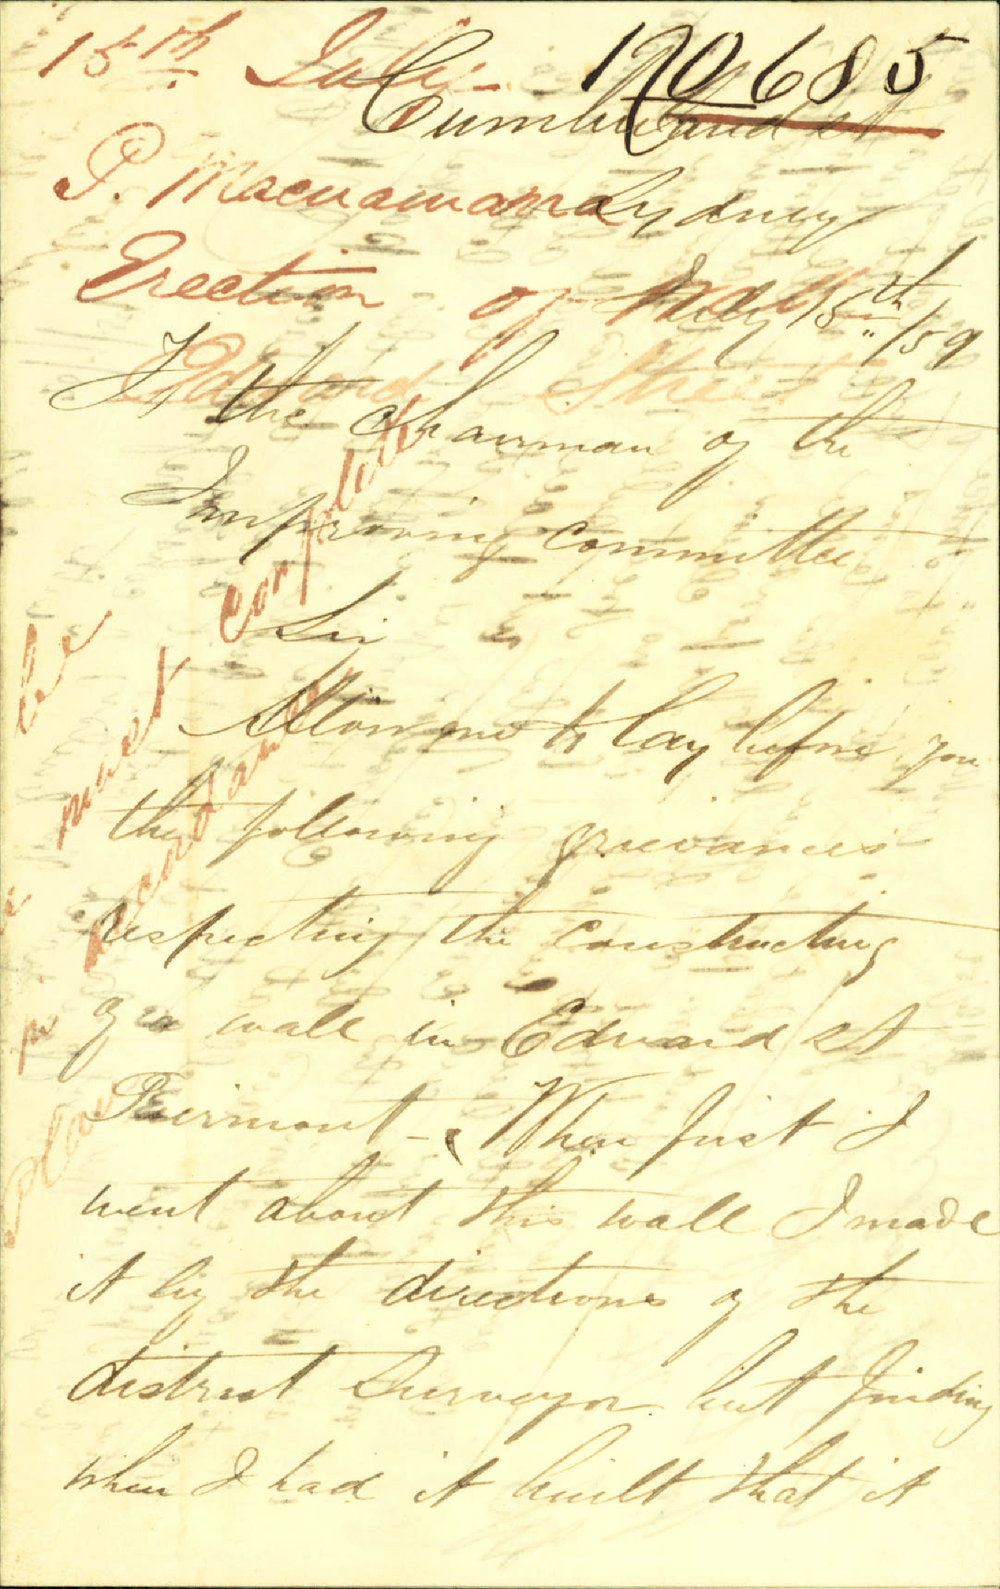 15th July
120685
Cumberland st
P. Macnamara
Sydney
Erection of Wall
July 15th /59
Edward Street
To the Chairman of the
Improving Committee
Sir
Allow me to lay before you
the following grievances
respecting the constructing
of a wall in Edward St
Piermont - When first I
went about this wall I made
it by the directions of the
district Surveyor but finding
when I had it built that it
the
must complete
accordance
plan